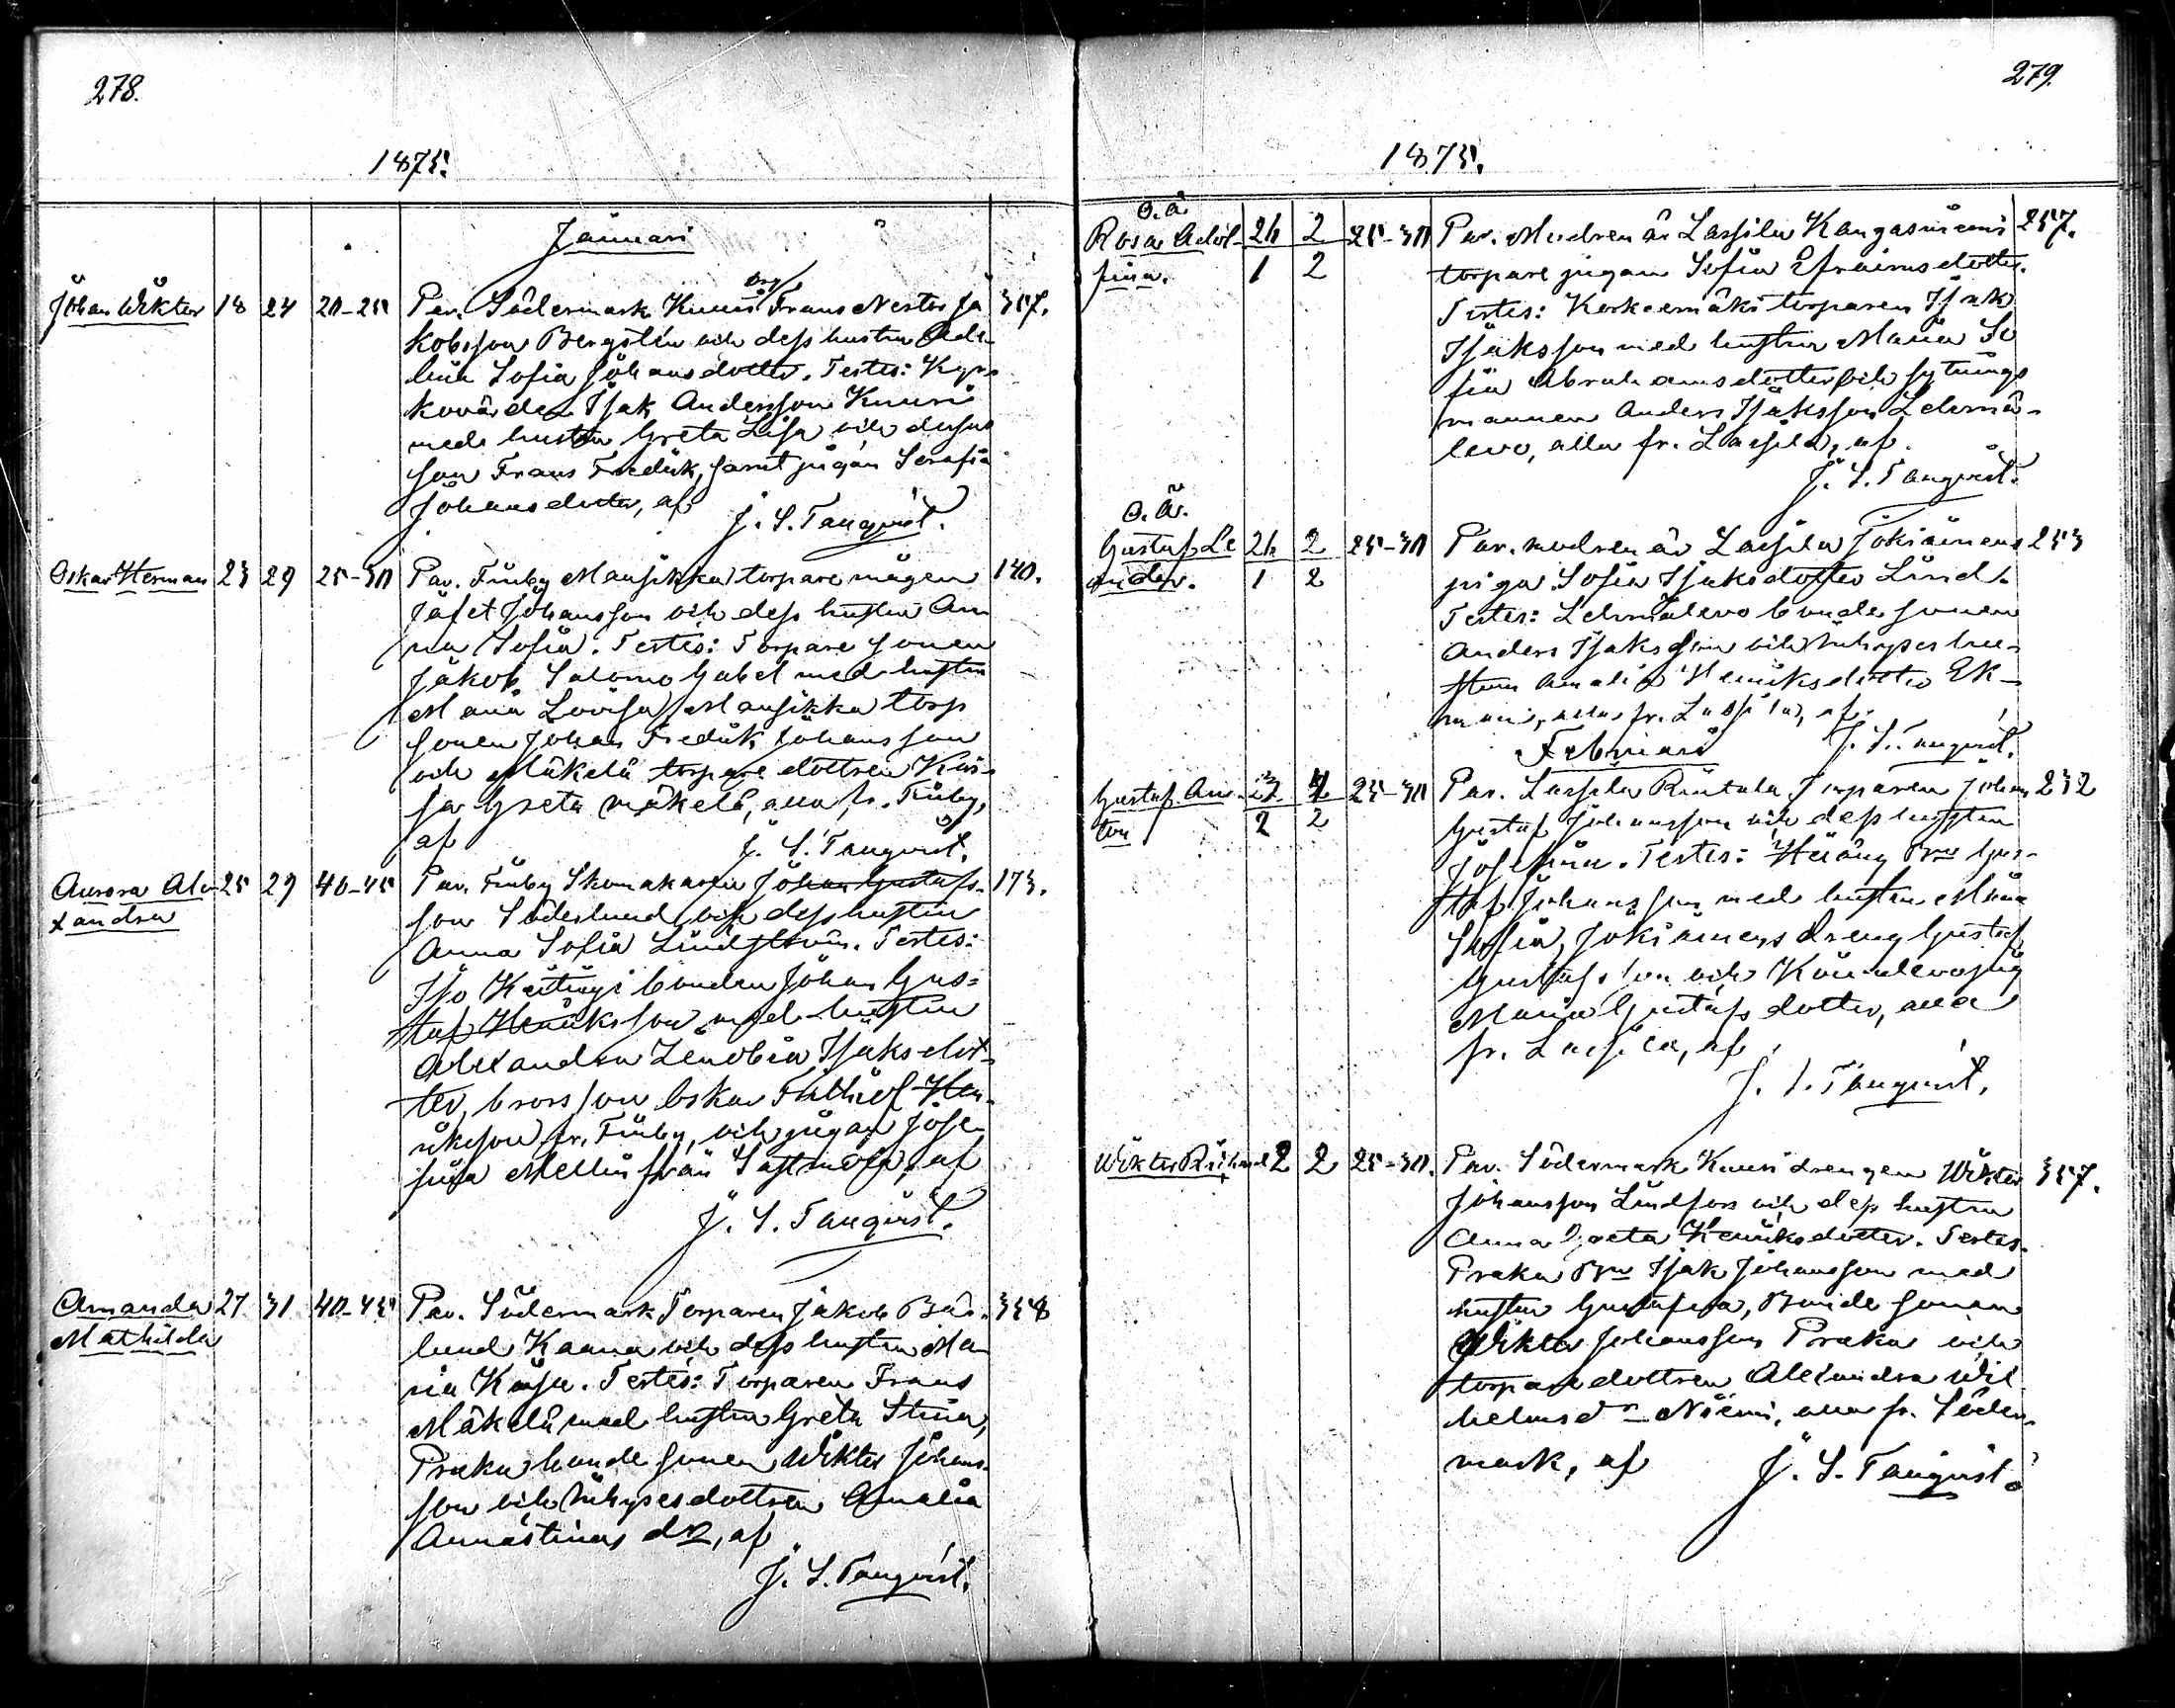 278.
1875.
Januari
Johan Wiktor 18 24 20-25 Par. Södermark Knuusi Drg Frans Nestor Ja 357.
kobsson Bergsten och dess hustru Ade-
lina Sofia Johansdotter. Testes: Kyr-
kovärden Isak Andersson Knuusi
med hustru Greta Lisa och deras
son Frans Fredrik, samt pigan Serafia
Johansdotter, af
J. S. Tanqvist.
Oskar Herman 23 29 25-30 Par. Finby Mansikka torpare mågen 140.
Jafet Johansson och dess hustru An
na Sofia. Testes: Torpare sonen
Jakob Salomo Gabel med hustru
Maria Lovisa, Mansikka torp
sonen Johan Fredrik Johansson
och Mäkelä torpare dottren Kai-
sa Greta Mäkelä, alla fr. Finby,
af
J. S. Tanqvist.
Aurora Ale- 25 29 40-45 Par. Finby Skomakaren Johan Gustafs- 173.
xandra
son Söderlund och dess hustru
Anna Sofia Lindström. Testes:
Iso bonden Johan Gus-
taf Henriksson med hustru
Alexandra Zenobia Isaksdot-
ter, brorsson Oskar Frithiof Hen-
riksson fr. Finby, och pigan Jose-
fina Mellin från Sastmola, af
J. S. Tanqvist.
Amanda 27 31 40-45 Par. Södermark Torparen Jakob Bär- 358
Mathilda
lund Kaana och dess hustru Ma
ria Kajsa. Testes: Torparen Frans
Mäkelä med hustru Greta Stina,
Praka bonde sonen Wiktor Johans-
son och inhysesdottren Amalia
Annastinas dr, af
J. S. Tanqvist.
279.
1875.
O. Ä.
Rosa Adol- 26 2 25-30 Par. Modren är Lassila Kangasniemi 257.
fina. 1 2 torpare pigan Sofia Efraimsdotter.
Testes: Korkeemäki torparen Isak
Isaksson med hustru Maria So
fia Abrahamsdotter och sytnings
mannen Anders Isaksson Lehmä-
levo, alla fr. Lassila, af
J. S. Tanqvist.
O. Ä.
Gustaf Le 26 2 25-30 Par. modren är Lassila Jokiainens 253
ander. 1 2 piga Sofia Isaksdotter Lind.
Testes: Lehmälevo bonde sonen
Anders Isaksson och inhyses hu-
strun Amalia Henriksdotter Ek-
man, alla fr. Lassila, af
Februari
J. S. Tanqvist.
Gustaf An- 25-30 Par. Lassila Rintala Torparen Johan 252
ton 2 2 Gustaf Johansson och dess hustru
Josefina. Testes: Bn Gus-
taf Johansson med hustru Maria
Sofia, Jokiainens dreng Gustaf
Gustafsson och pig
Maria Gustafsdotter, alla
fr. Lassila, af
J. S. Tanqvist.
Wiktor Rikard 2 2 25-30. Par. Södermark Knuusi drengen Wiktor 357.
Johansson Lindfors och dess hustru
Anna Greta Henriksdotter. Testes.
Praka Bn Isak Johansson med
hustru Gustafva, Bonde sonen
Wiktor Johansson Praka och
torpare dottren Alexandra Wil
helmsdr Niemi, alla fr. Söder-
mark, af
J. S. Tanqvist.